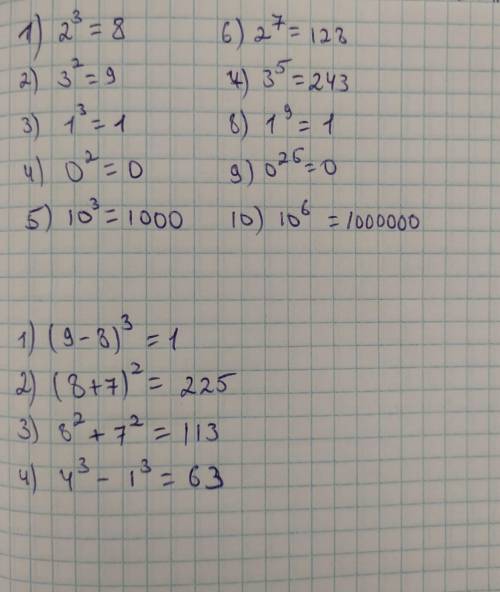 1) 2³ = 8
2) 3² = 9
3) 1³ = 1
4) 0² = 0
5) 10³ = 1000
6) 2⁷ = 128
7) 3⁵ = 243
8) 1⁹ = 1
9) 0²⁶ = 0
10) 10⁶ = 1000000
1) (9 - 8)³ = 1
2) (8 + 7)² = 225
3) 8² + 7² = 113
4) 4³ - 1³ = 63